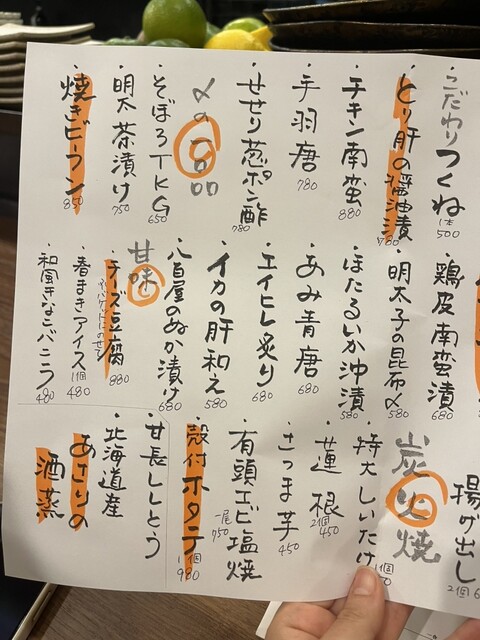 こだわりつくね
1本500
とり肝の醤油漬
780
チキン南蛮
880
手羽唐
780
せせり葱ポン酢
780
〆の一品
そぼろTKG
650
明太茶漬け
750
焼きビーフン
850
鶏皮南蛮漬
680
明太子の昆布〆
580
ほたるいか沖漬
580
あみ青唐
680
エイヒレ炙り
680
イカの肝和え
580
八百屋のぬか漬け
680
甘味
チーズ豆腐
バケットにのせて
880
春まきアイス
1個480
和風きなこバニラ
480
揚げ出し
2個
炭火焼
特大しいたけ
1個
蓮根
2個450
さつま芋
450
有頭エビ塩焼
一尾750
殻付ホタテ
1個980
甘長ししとう
北海道産
あさりの
酒蒸